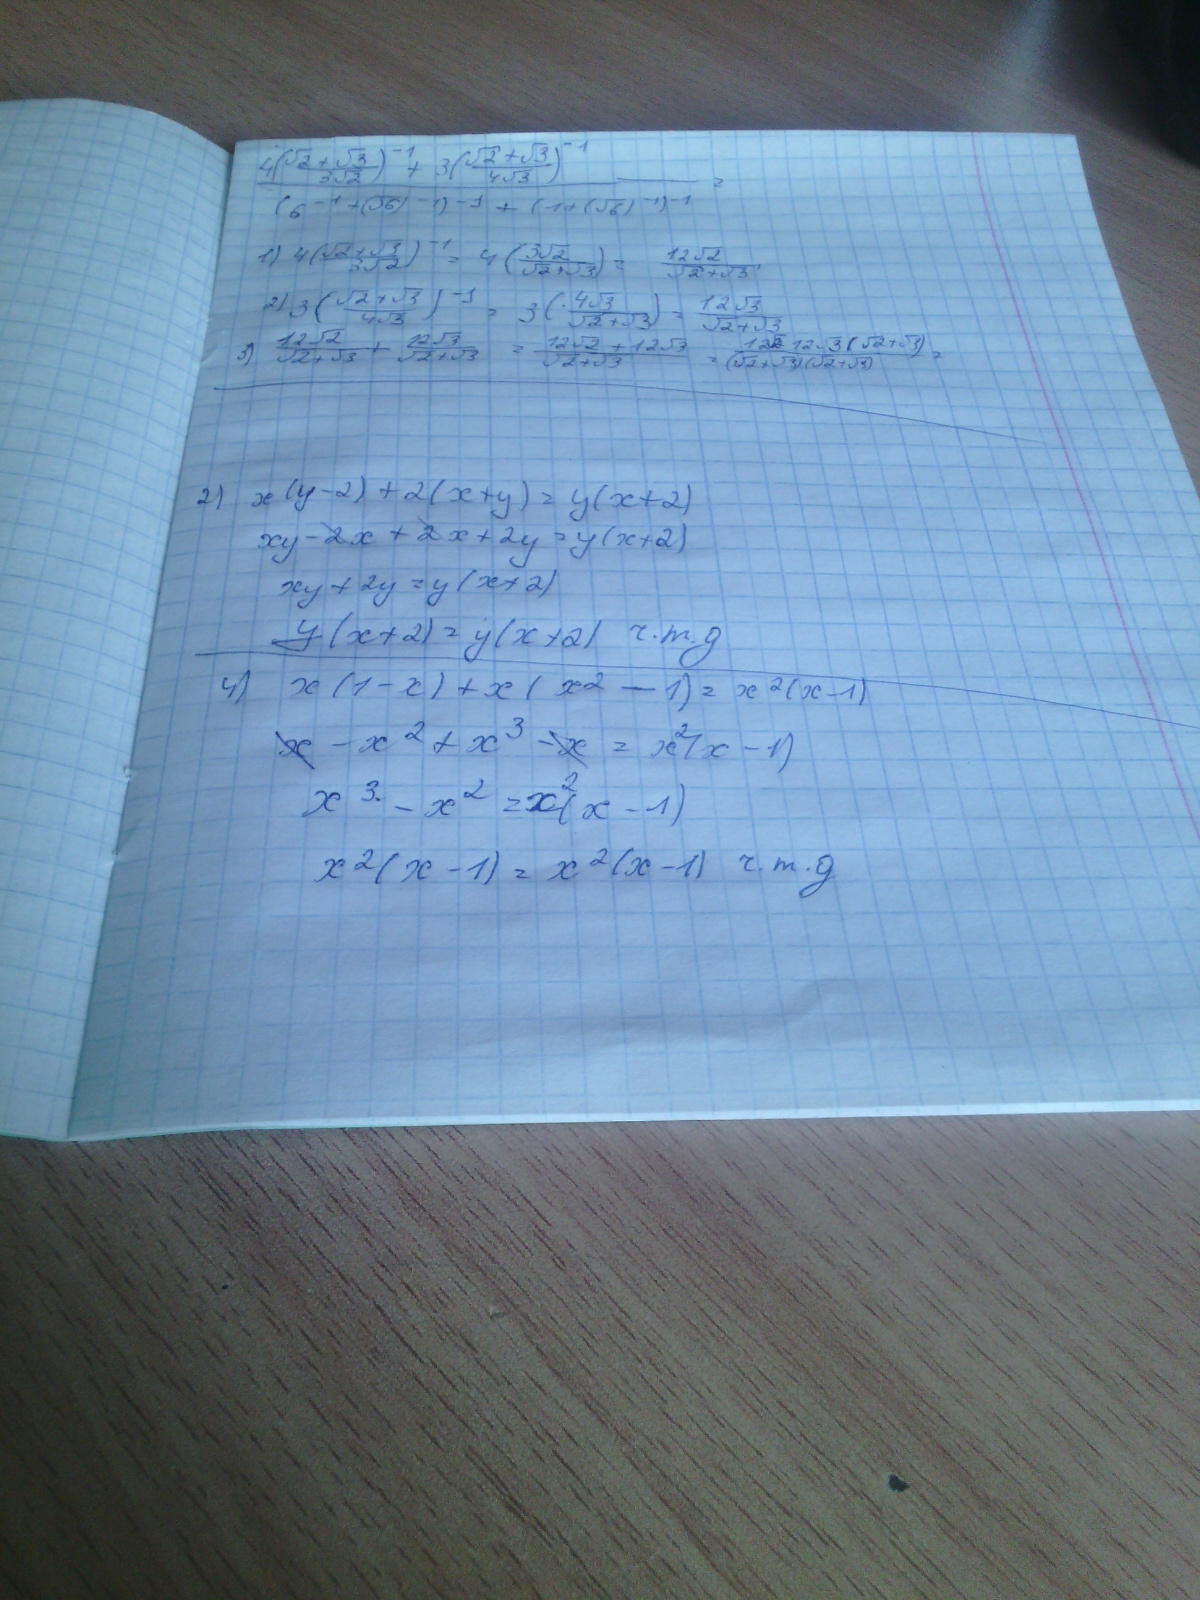 4(√2+√3/3√2)⁻¹ + 3(√2+√3/4√3)⁻¹ =
(6⁻¹+(√6)⁻¹)⁻¹ + (1+(√6)⁻¹)⁻¹
1) 4(√2+√3/3√2)⁻¹ = 4(3√2/√2+√3) = 12√2/√2+√3
2) 3(√2+√3/4√3)⁻¹ = 3(4√3/√2+√3) = 12√3/√2+√3
3) 12√2/√2+√3 + 12√3/√2+√3 = 12√2+12√3/√2+√3 = 12√2 12√3(√2+√3)/(√2+√3)(√2+√3) =
2) x(y-2)+2(x+y)=y(x+2)
xy-2x+2x+2y=y(x+2)
xy+2y=y(x+2)
y(x+2)=y(x+2) ч.т.д
4) x(1-x)+x(x²-1)=x²(x-1)
x-x²+x³-x=x²(x-1)
x³-x²=x²(x-1)
x²(x-1)=x²(x-1) ч.т.д